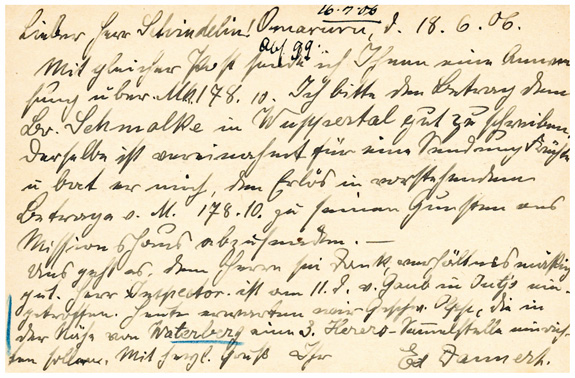 16.7.06
Lieber Herr Schindelin! Omaruru, d. 18.6.06.
Mit gleicher Post sende ich Ihnen eine Anwei-
sung über Mk. 178.10. Ich bitte den Betrag dem
Br. Schmolke in Wuppertal gut zu schreiben,
derselbe ist vereinnahmt für eine Sendung
u bat er mich, den Erlös in vorstehendem
Betrage v. M. 178.10. zu seinen Gunsten ans
Missionshaus abzusenden. —
Uns geht es, dem Herrn sei Dank, verhältnismäßig
gut. Herr Inspector ist am 11. d. v. Gaub in Otjo ein-
getroffen. Heute erwarten wir Geschw. die in
der Nähe von Waterberg eine 3. Herero-Sammelstelle einrich-
ten sollen. Mit herzl. Gruß Ihr Ed Dannert.